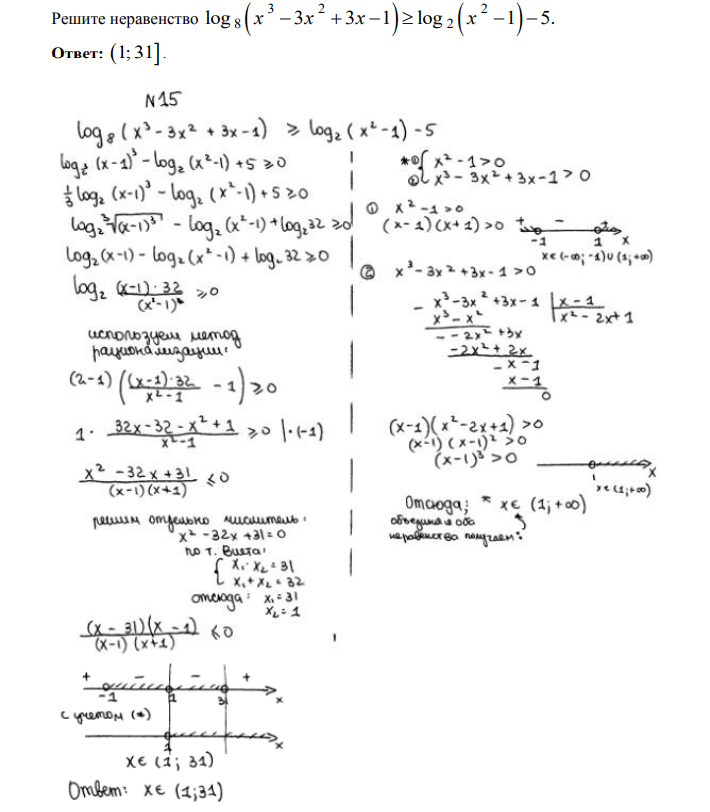 Решите неравенство log₈(x³ − 3x² + 3x − 1) ≥ log₂(x² − 1) − 5.
Ответ: (1; 31].
N15
log₈(x³ − 3x² + 3x − 1) ≥ log₂(x² − 1) − 5
log₂³(x−1)³ − log₂(x²−1) + 5 ≥ 0
⅓ log₂(x−1)³ − log₂(x²−1) + 5 ≥ 0
log₂ ³√(x−1)³ − log₂(x²−1) + log₂32 ≥ 0
log₂(x−1) − log₂(x²−1) + log₂32 ≥ 0
log₂ (x−1)·32 / (x²−1) ≥ 0
используем метод
рационализации:
(2−1)((x−1)·32 / x²−1 − 1) ≥ 0
1· 32x − 32 − x² + 1 / x²−1 ≥ 0 |·(−1)
x² − 32x + 31 / (x−1)(x+1) ≤ 0
решим отдельно числитель:
x² − 32x + 31 = 0
по т. Виета:
{ x₁·x₂ = 31
x₁ + x₂ = 32
отсюда: x₁ = 31
x₂ = 1
(x − 31)(x − 1) / (x−1)(x+1) ≤ 0
+ − − +
−1 1 31 x
с учетом (*)
1 x
x ∈ (1; 31)
Ответ: x ∈ (1; 31)
* ① { x² − 1 > 0
② x³ − 3x² + 3x − 1 > 0
① x² − 1 > 0
(x−1)(x+1) > 0 + − + −1 1 x
x ∈ (−∞; −1) ∪ (1; +∞)
② x³ − 3x² + 3x − 1 > 0
− x³ − 3x² + 3x − 1 | x − 1
x³ − x² | x² − 2x + 1
− −2x² + 3x
−2x² + 2x
− x − 1
x − 1
0
(x−1)(x² − 2x + 1) > 0
(x−1)(x−1)² > 0
(x−1)³ > 0
1 x
x ∈ (1; +∞)
Отсюда; * x ∈ (1; +∞)
объединяя оба
неравенства получаем: